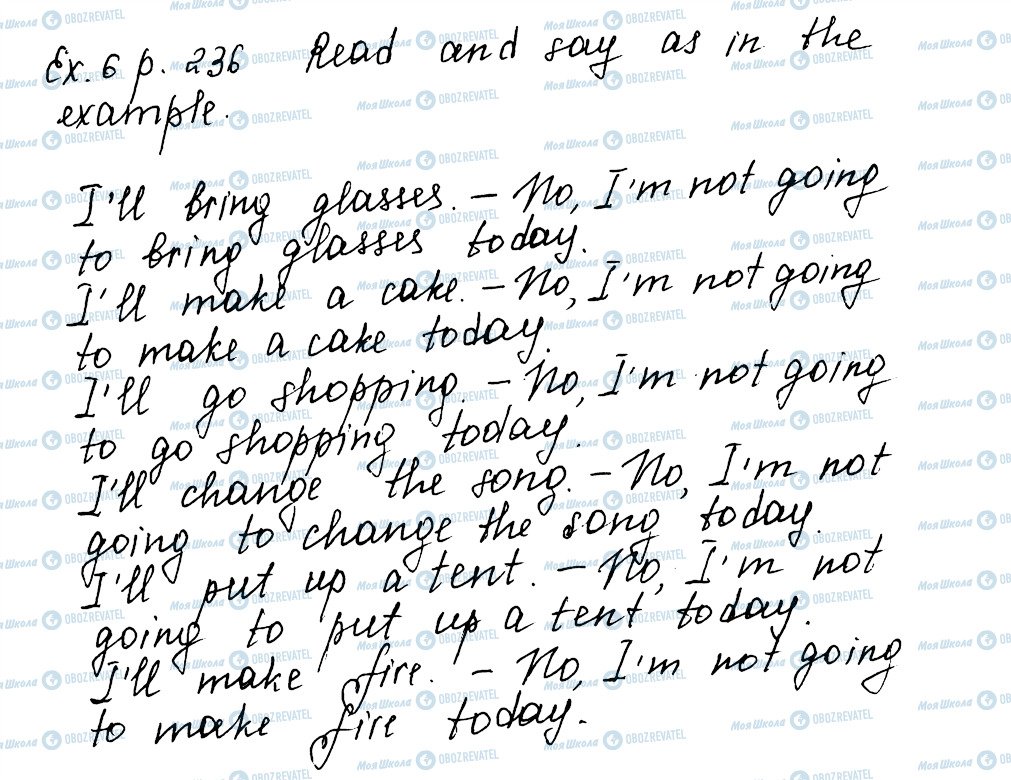 Ex. 6 p. 236 Read and say as in the
example.
I'll bring glasses. – No, I'm not going
to bring glasses today.
I'll make a cake. – No, I'm not going
to make a cake today.
I'll go shopping. – No, I'm not going
to go shopping today.
I'll change the song. – No, I'm not
going to change the song today.
I'll put up a tent. – No, I'm not
going to put up a tent today.
I'll make fire. – No, I'm not going
to make fire today.